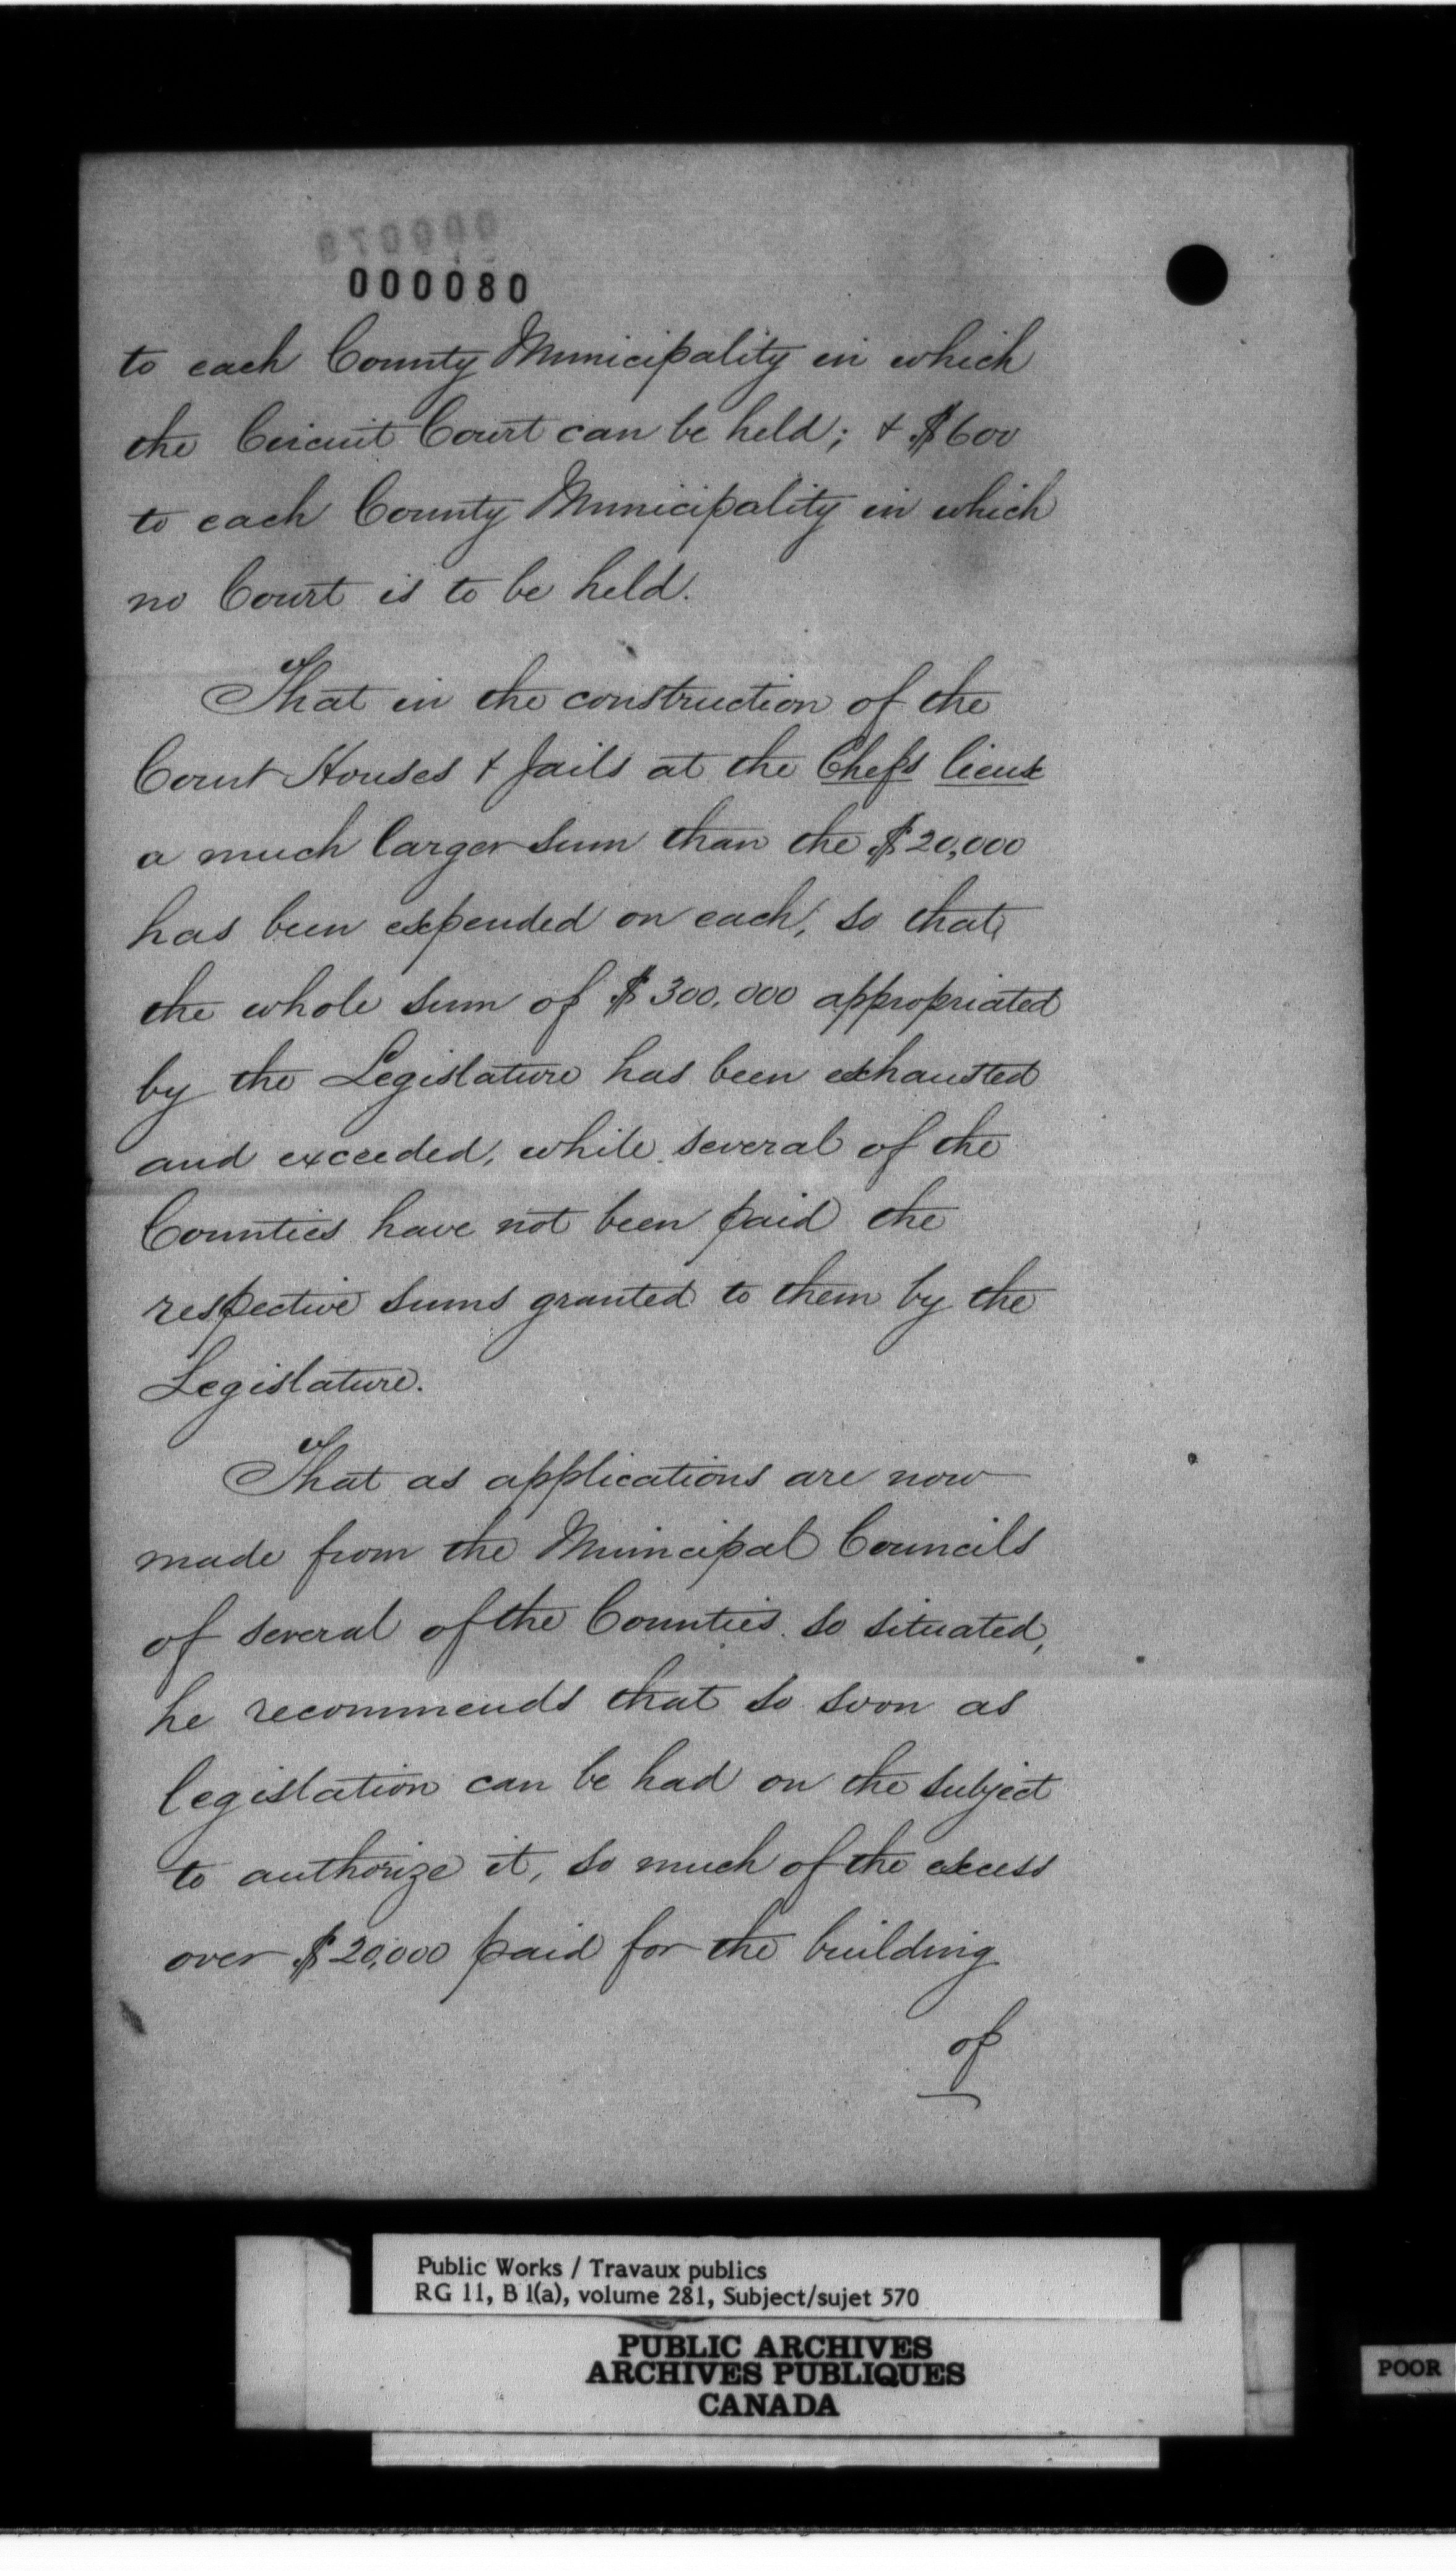 000079
000080
to each County Municipality in which
the Circuit Court can be held; & $600
to each County Municipality in which
no Court is to be held.
That in the construction of the
Court Houses & Jails at the Chefs lieux
a much larger sum than the $20,000
has been expended on each, so that
the whole sum of $300,000 appropriated
by the Legislature has been exhausted
and exceeded, while several of the
Counties have not been paid the
respective sums granted to them by the
Legislature.
That as applications are now
made from the Municipal Councils
of several of the Counties so situated,
he recommends that so soon as
legislation can be had on the subject
to authorize it, so much of the excess
over $20,000 paid for the building
of
Public Works / Travaux publics
RG 11, B 1(a), volume 281, Subject/sujet 570
PUBLIC ARCHIVES
ARCHIVES PUBLIQUES
CANADA
POOR